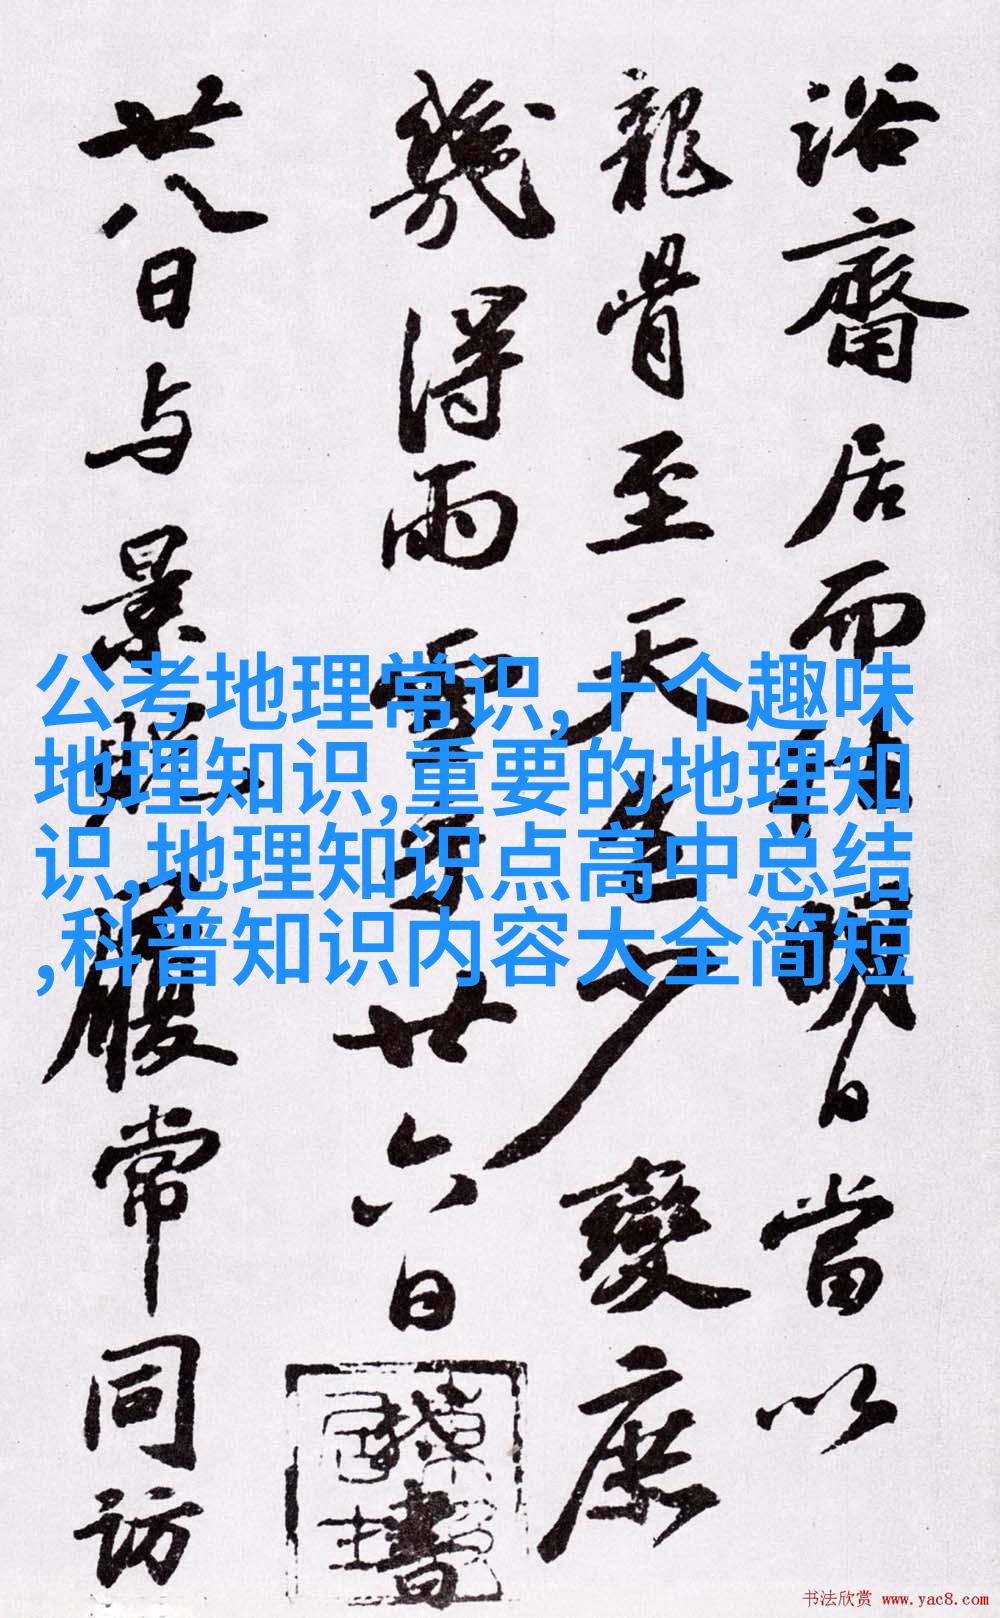 浴齋居而明日當以
龍骨至天色少變庶
幾得雨雪乎廿六日書
廿八日与景履常同訪
公考地理常识,十个趣味
地理知识,重要的地理知
识,地理知识点高中总结
,科普知识内容大全简短
书法欣赏 www.yac8.com